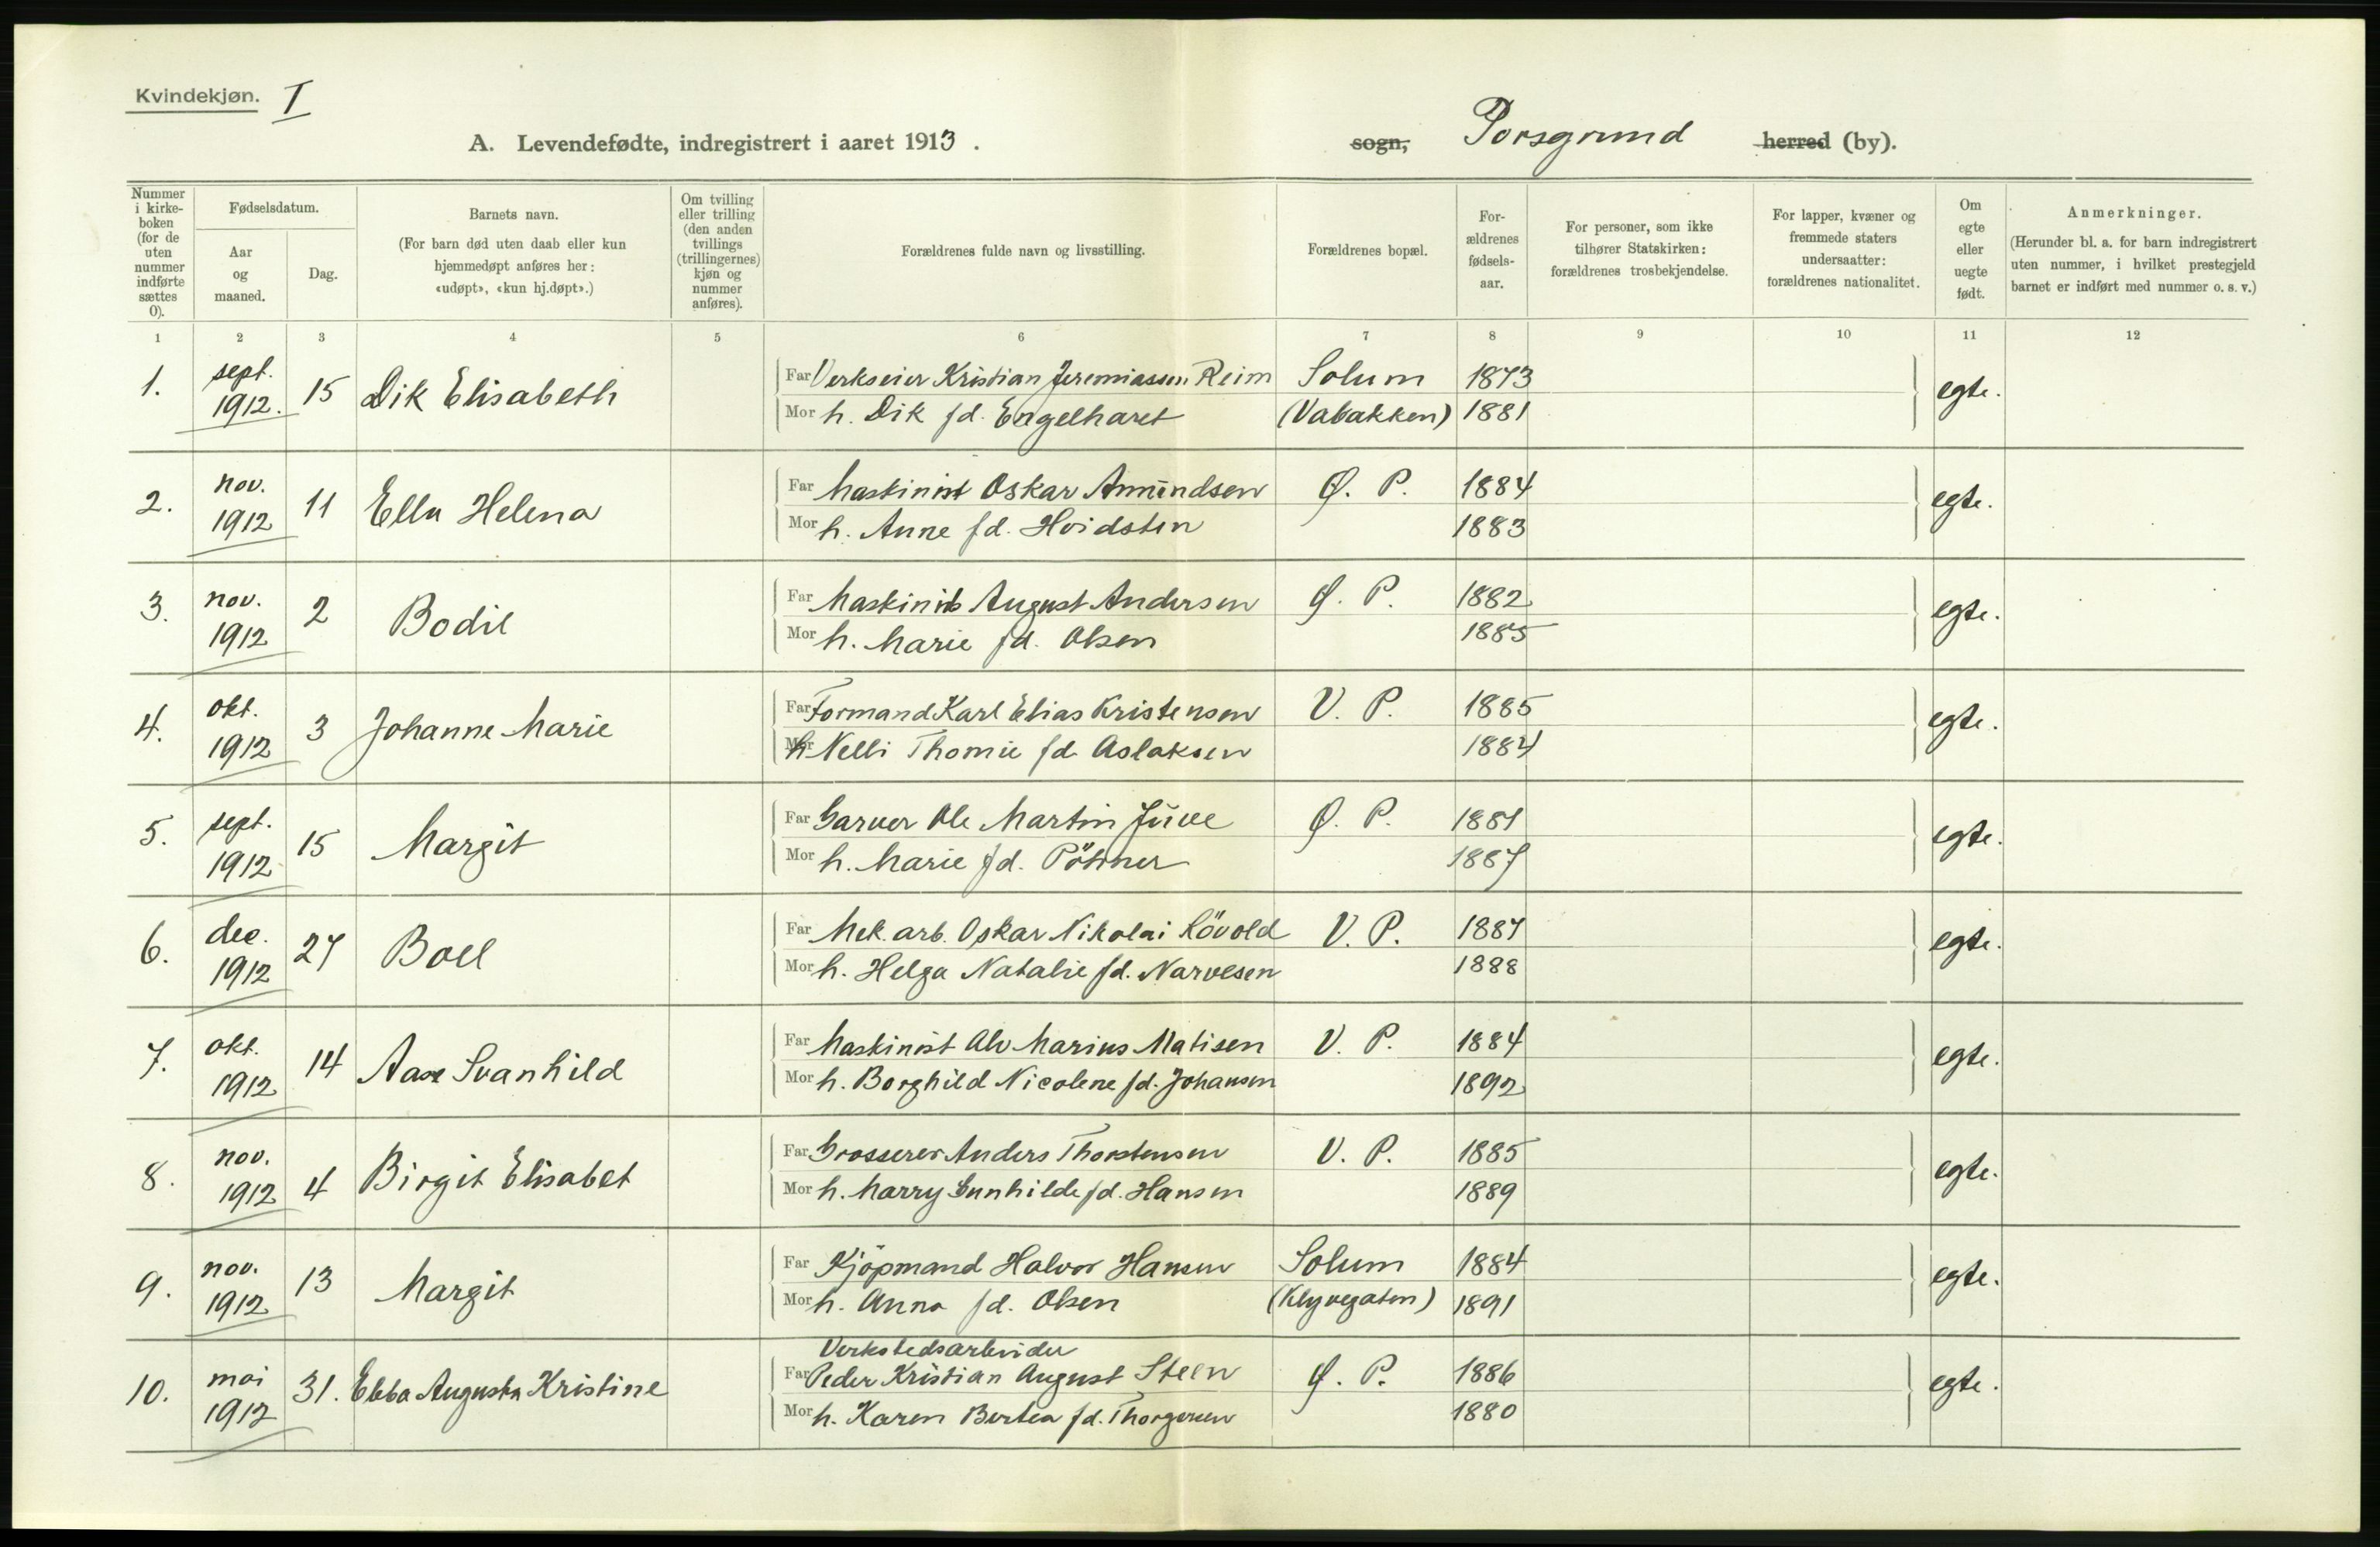 Kvindekjøn. I
A. Levendefødte, indregistrert i aaret 1913.
sogn, Porsgrund herred (by).
Nummer i kirke-boken (for de uten nummer indførte sættes 0).
Fødselsdatum.
Aar og maaned.
Dag.
Barnets navn.
(For barn død uten daab eller kun hjemmedøpt anføres her: «udøpt», «kun hj.døpt».)
Om tvilling eller trilling (den anden tvillings (trillingernes) kjøn og nummer anføres).
Forældrenes fulde navn og livsstilling.
Forældrenes bopæl.
For-ældrenes fødsels-aar.
For personer, som ikke tilhører Statskirken: forældrenes trosbekjendelse.
For lapper, kvæner og fremmede staters undersaatter: forældrenes nationalitet.
Om egte eller uegte født.
Anmerkninger.
(Herunder bl. a. for barn indregistrert uten nummer, i hvilket prestegjeld barnet er indført med nummer o. s. v.)
1 2 3 4 5 6 7 8 9 10 11 12
1. sept. 1912. 15 Dik Elisabeth
Far Verkseier Kristian Jeremiassen Reim Solum 1873 egte.
Mor h. Dik fd. Engelharet (Vabakken) 1881
2. nov. 1912 11 Ella Helena
Far Maskinist Oskar Amundsen Ø. P. 1884 egte.
Mor h. Anne fd. Hvidsten 1883
3. nov. 1912 2 Bodil
Far Maskinist August Andersen Ø. P. 1882 egte.
Mor h. Marie fd. Olsen 1885
4. okt. 1912 3 Johanne Marie
Far Formand Karl Elias Kristensen V. P. 1885 egte.
Mor h. Nelli Thomie fd. Aslaksen 1884
5. sept. 1912 15 Margit
Far Garver Ole Martin Juve Ø. P. 1881 egte.
Mor h. Marie fd. 1887
6. dec. 1912 27 Boel
Far Mek. arb. Oskar Nikolai Lövold V. P. 1887 egte.
Mor h. Helga Natalie fd. Narvesen 1888
7. okt. 1912 14 Aase Svanhild
Far Maskinist Alv Marius Matisen V. P. 1884 egte.
Mor h. Borghild Nicolene fd. Johansen 1892
8. nov. 1912 4 Birgit Elisabet
Far Grosserer Anders Thorstensen V. P. 1885 egte.
Mor h. Marry Gunhilde fd. Hansen 1889
9. nov. 1912 13 Margit
Far Kjöpmand Halvor Hansen Solum 1884 egte.
Mor h. Anna fd. Olsen (Klyvegaten) 1891
10. mai 1912 31. Ebba Augusta Kristine
Verkstedsarbeider
Far Peder Kristian August Steen Ø. P. 1886 egte.
Mor h. Karen Bertea fd. Thorgersen 1880